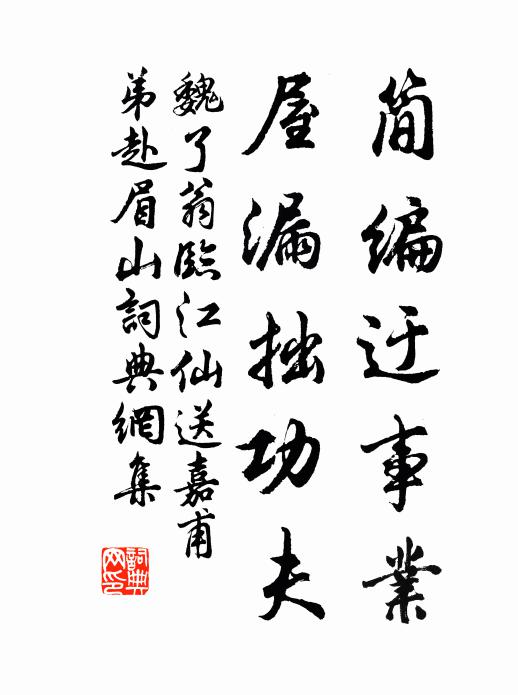 简编迂事業
屋漏拙功夫
魏了翁臨江仙送嘉甫
弟赴眉山詞典網集
詞典网印